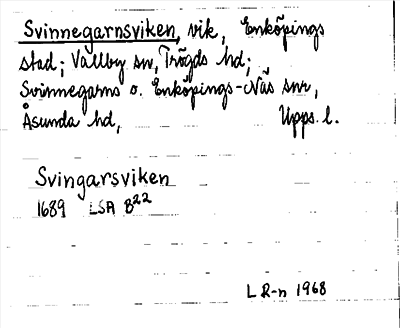 Svinnegarnsviken, vik, Enköpings
stad; Vallby sn, Trögds hd;
Svinnegarns o. Enköpings-Näs snr,
Åsunda hd, Upps. l.
Svingarsviken
1689 LSA B22
L R-n 1968